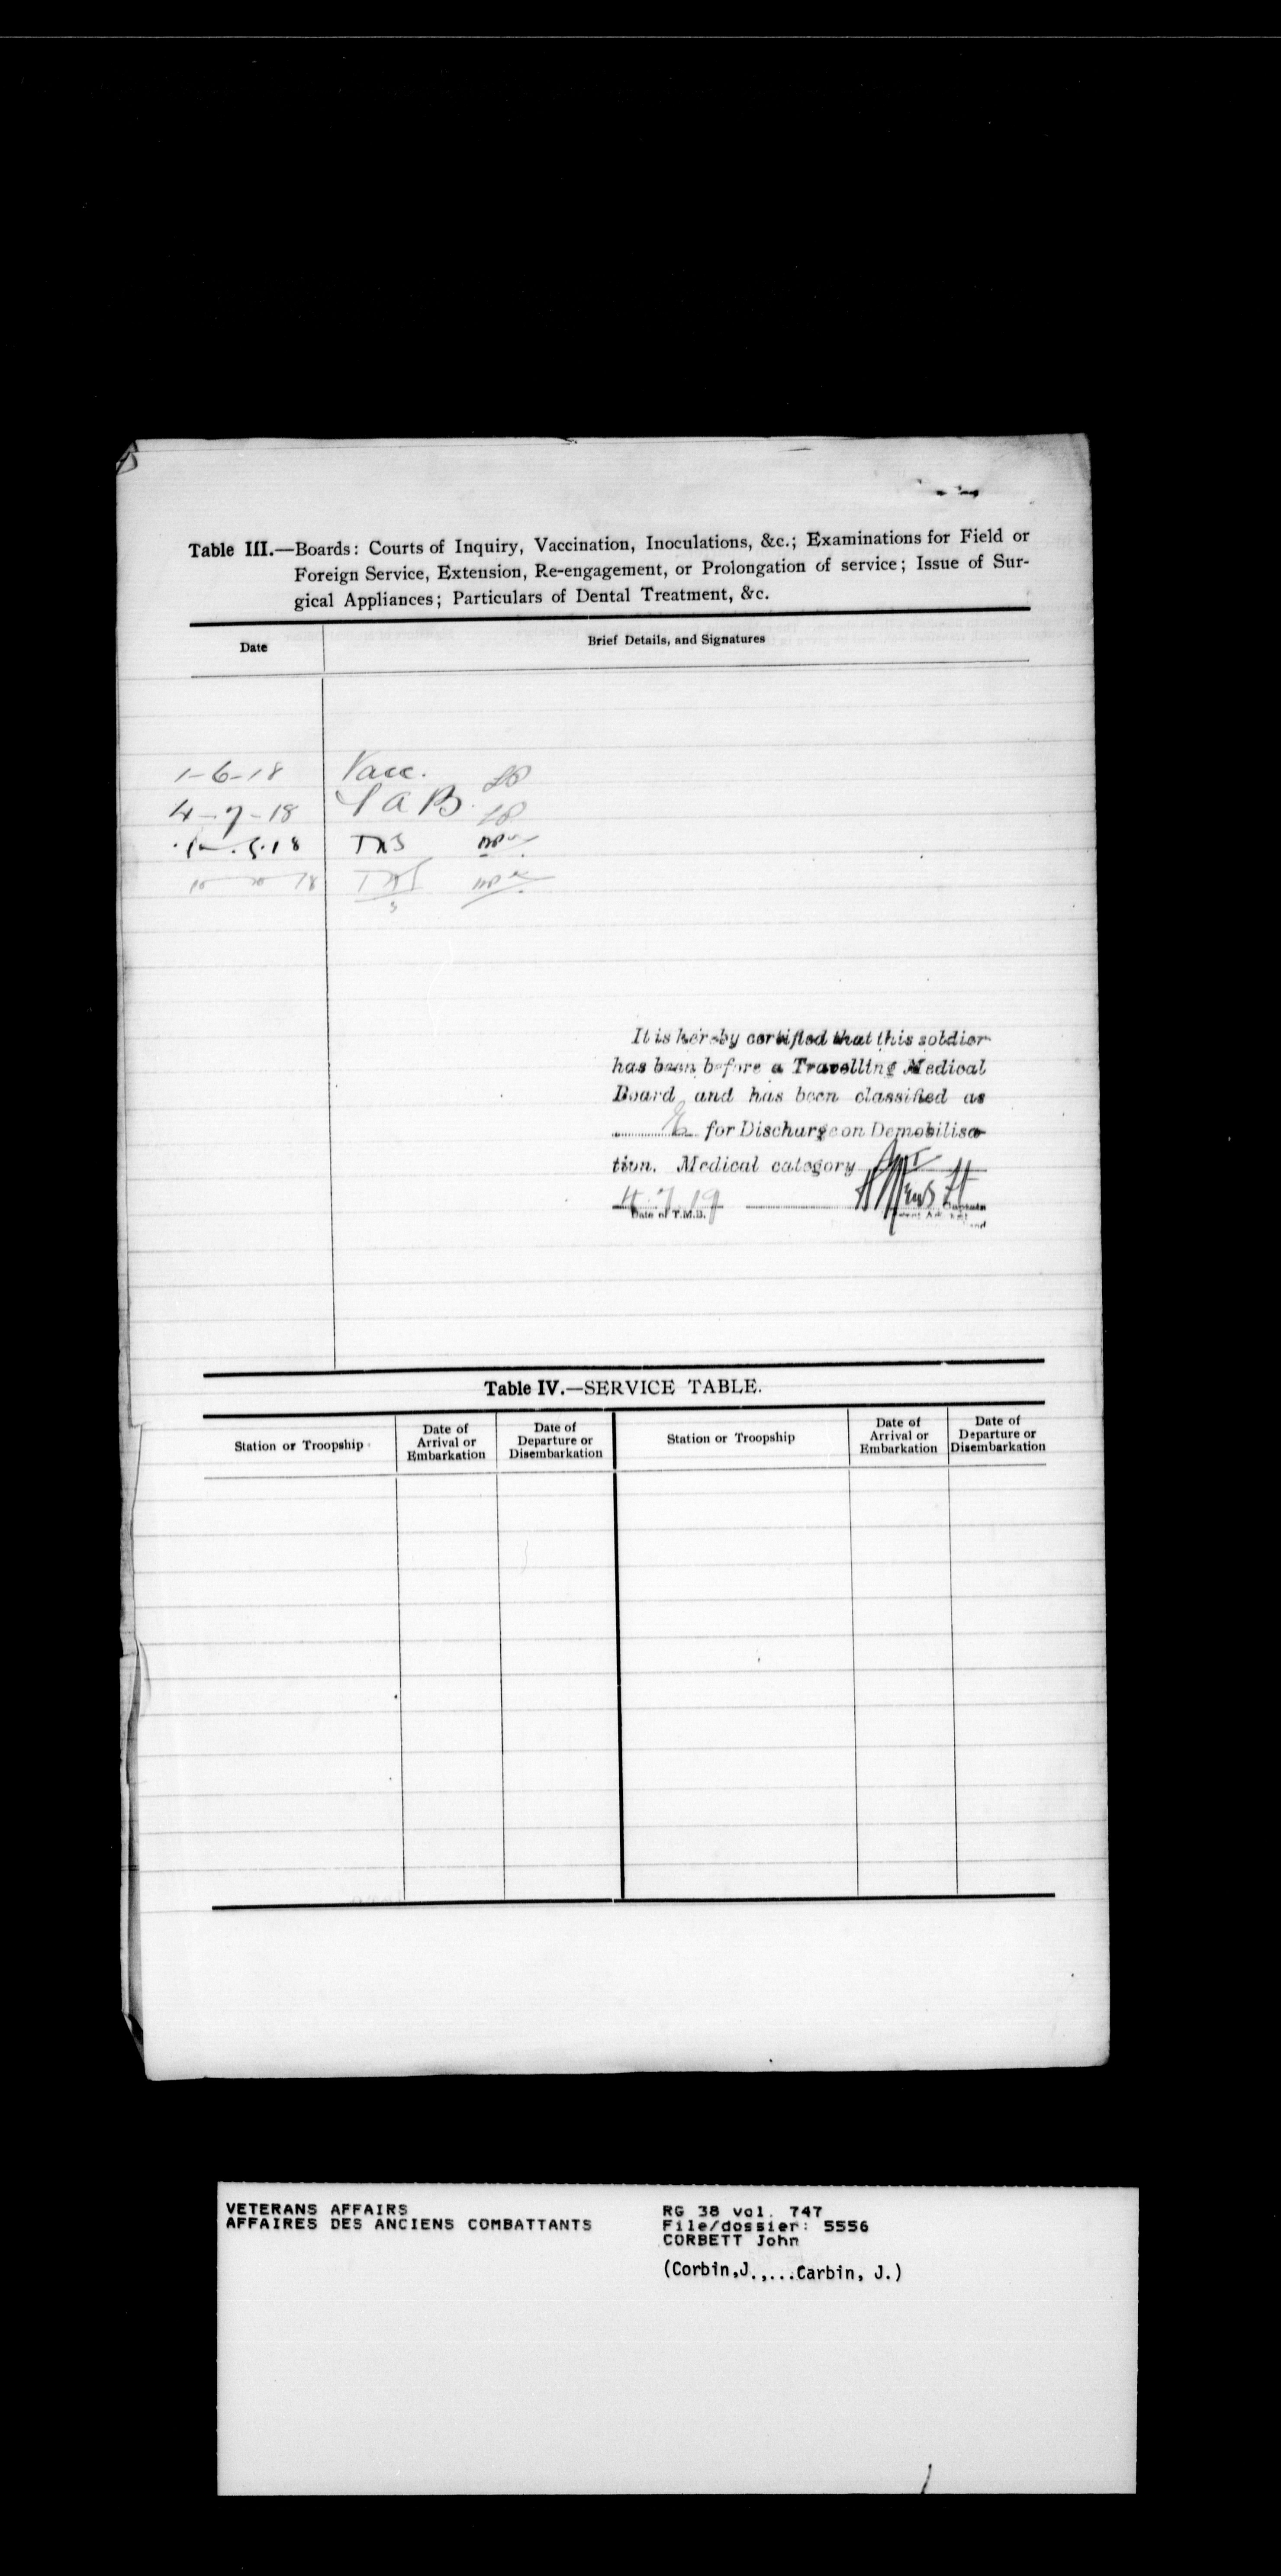 Table III.—Boards: Courts of Inquiry, Vaccination, Inoculations, &c.; Examinations for Field or
Foreign Service, Extension, Re-engagement, or Prolongation of service; Issue of Sur-
gical Appliances; Particulars of Dental Treatment, &c.
Date
Brief Details, and Signatures
1-6-18 Vacc.
4-7-18 TAB
It is hereby certified that this soldier
has been before a Travelling Medical
Board and has been classified as
for Discharge on Demobilisa-
tion. Medical category
4.7.19
Date of T.M.B. Captain
Table IV.—SERVICE TABLE.
Station or Troopship
Date of
Arrival or
Embarkation
Date of
Departure or
Disembarkation
Station or Troopship
Date of
Arrival or
Embarkation
Date of
Departure or
Disembarkation
VETERANS AFFAIRS
AFFAIRES DES ANCIENS COMBATTANTS
RG 38 vol. 747
File/dossier: 5556
CORBETT John
(Corbin,J.,...Carbin, J.)